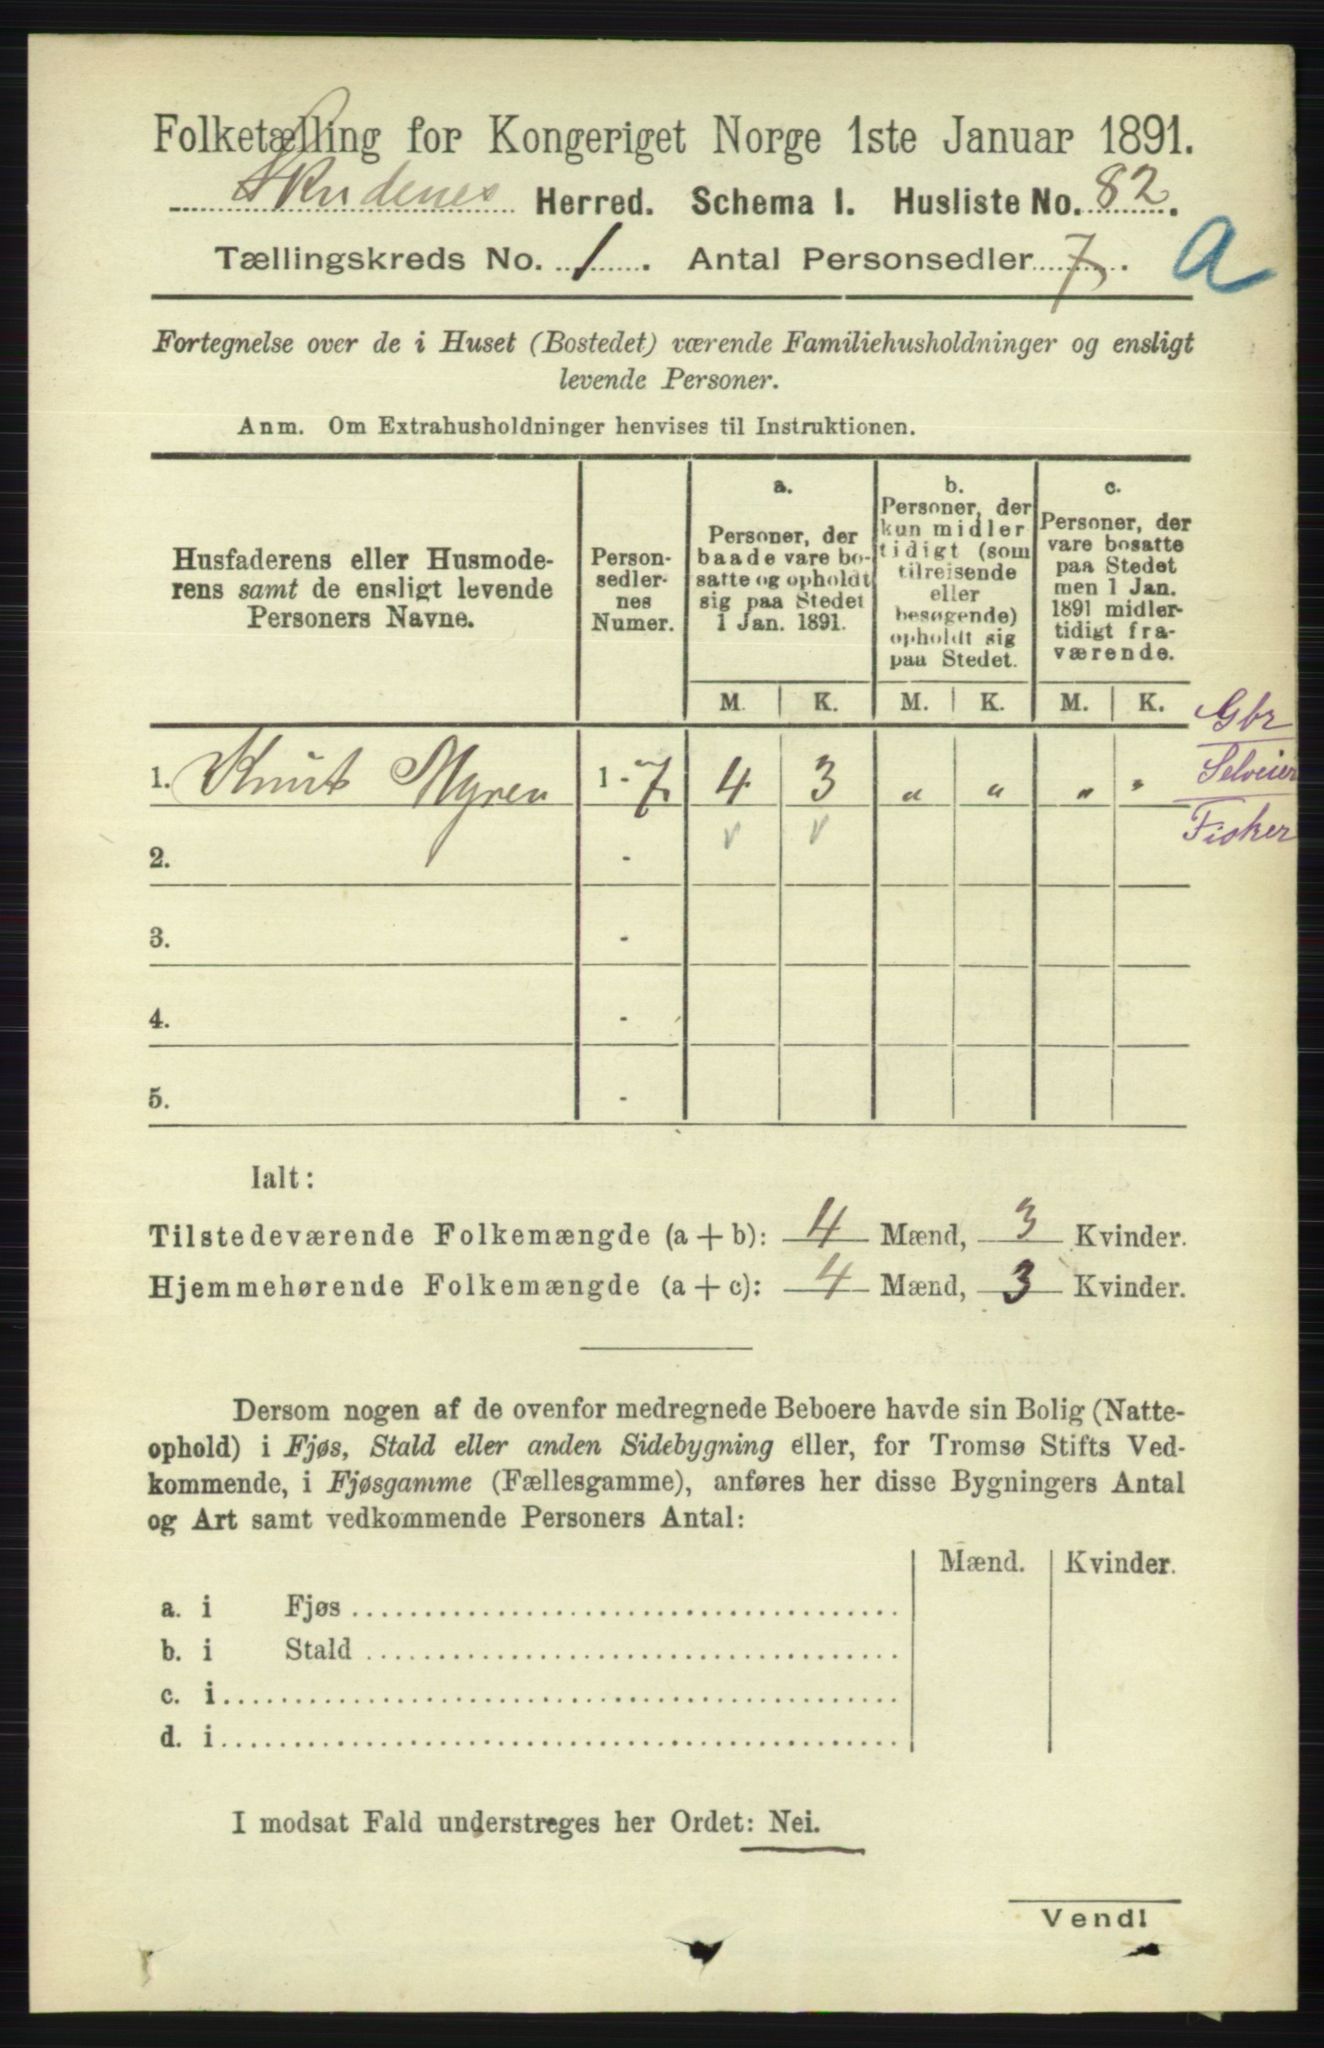 Folketælling for Kongeriget Norge 1ste Januar 1891.
Skudenes Herred. Schema I. Husliste No. 82.
Tællingskreds No. 1. Antal Personsedler 7. a
Fortegnelse over de i Huset (Bostedet) værende Familiehusholdninger og ensligt
levende Personer.
Anm. Om Extrahusholdninger henvises til Instruktionen.
Husfaderens eller Husmode-
rens samt de ensligt levende
Personers Navne.
Person-
sedler-
nes
Numer.
a.
Personer, der
baade vare bo-
satte og opholdt
sig paa Stedet
1 Jan. 1891.
b.
Personer, der
kun midler
tidigt (som
tilreisende
eller
besøgende)
opholdt sig
paa Stedet.
c.
Personer, der
vare bosatte
paa Stedet
men 1 Jan.
1891 midler-
tidigt fra-
værende.
M. K. M. K. M. K.
Gbr
Selveier
Fisker
1. Knut Myren 1 - 7 4 3 „ „ „ „
2. - v v
3. -
4. -
5. -
Ialt:
Tilstedeværende Folkemængde (a + b): 4 Mænd, 3 Kvinder.
Hjemmehørende Folkemængde (a + c): 4 Mænd, 3 Kvinder.
Dersom nogen af de ovenfor medregnede Beboere havde sin Bolig (Natte-
ophold) i Fjøs, Stald eller anden Sidebygning eller, for Tromsø Stifts Ved-
kommende, i Fjøsgamme (Fællesgamme), anføres her disse Bygningers Antal
og Art samt vedkommende Personers Antal:
Mænd. Kvinder.
a. i Fjøs
b. i Stald
c. i
d. i
I modsat Fald understreges her Ordet: Nei.
Vend!